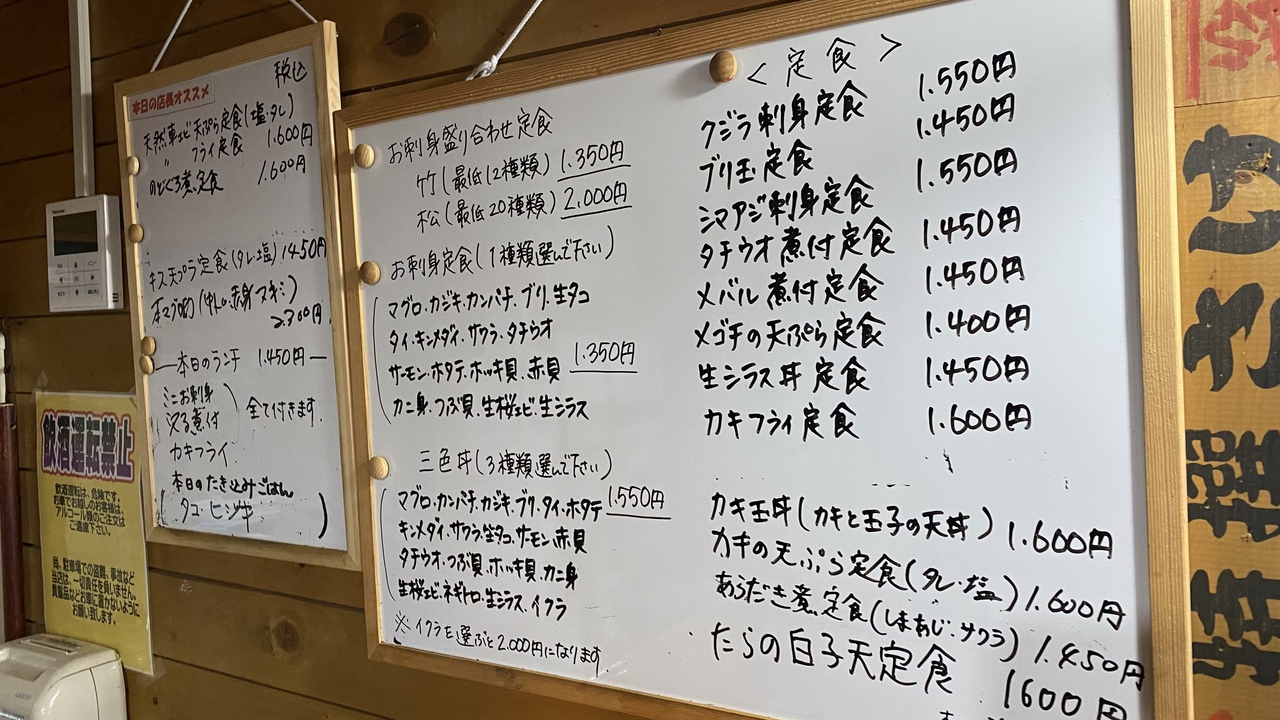 税込
本日の店長オススメ
天然車エビ天ぷら定食(塩・タレ)
1.600円
〃 フライ定食
1.600円
のどぐろ煮定食
キス天プラ定食(タレ・塩) 1450円
本マグロ
2.700円
—本日のランチ 1.450円—
ミニお刺身
煮付
全て付きます。
カキフライ
本日のたき込みごはん
(タコ・ヒジキ)
お刺身盛り合わせ定食
竹(最低12種類) 1.350円
松(最低20種類) 2.000円
お刺身定食(1種類選んで下さい)
マグロ・カジキ・カンパチ・ブリ・生タコ
タイ・キンメダイ・サワラ・タチウオ
サーモン・ホタテ・ホッキ貝・赤貝
1.350円
カニ身・つぶ貝・生桜エビ・生シラス
三色丼(3種類選んで下さい)
マグロ・カンパチ・カジキ・ブリ・タイ・ホタテ 1.550円
キンメダイ・サワラ・生タコ・サーモン・赤貝
タチウオ・つぶ貝・ホッキ貝・カニ身
生桜エビ・ネギトロ・生シラス・イクラ
※イクラを選ぶと2.000円になります
<定食>
クジラ刺身定食 1.550円
ブリ玉定食 1.450円
シマアジ刺身定食 1.550円
タチウオ煮付定食 1.450円
メバル煮付定食 1.450円
メゴチの天ぷら定食 1.400円
生シラス丼定食 1.450円
カキフライ定食 1.600円
カキ玉丼(カキと玉子の天丼) 1.600円
カキの天ぷら定食(タレ・塩) 1.600円
あらだき煮定食(しまあじ・サワラ) 1.450円
たらの白子天定食 1600円
飲酒運転禁止
飲酒運転は、危険です。
お車でお越しのお客様は、
アルコール類のご注文は
ご遠慮下さい。
尚、駐車場での盗難、事故など
当店は、一切責任を負いません。
貴重品などお車に置かないように
お願い致します。
Panasonic